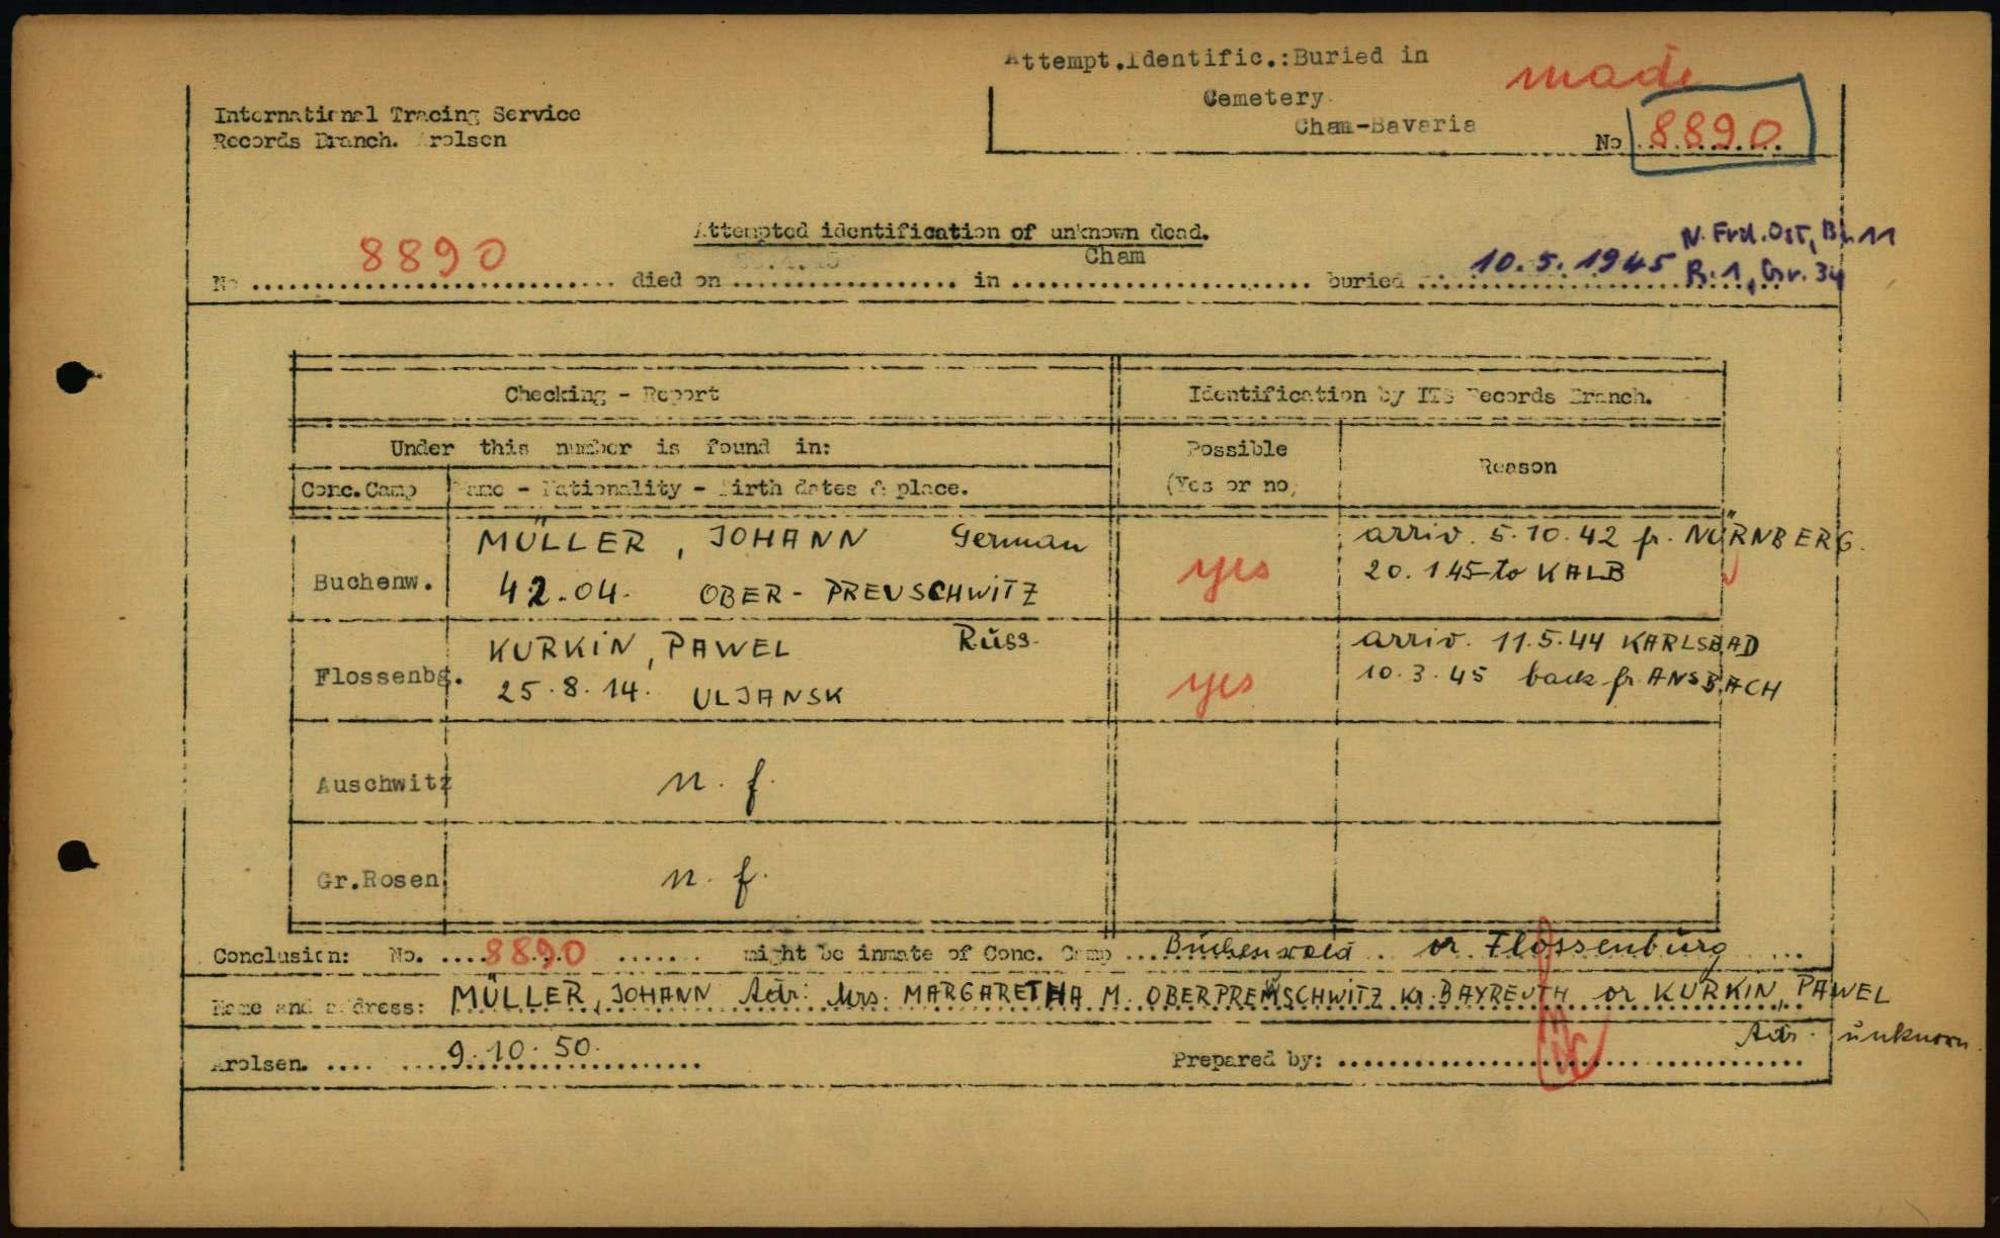 Attempt.Identific.:Buried in
Cemetery
Cham-Bavaria
made
No 8890
International Tracing Service
Records Branch. Arolsen
Attempted identification of unknown dead.
N. Frd. Ost, Bl. 11
R. 1, Gr. 34
No 8890 died on in Cham buried 10.5.1945
Checking - Report Identification by ITS Records Branch.
Under this number is found in: Possible (Yes or no) Reason
Conc.Camp Name - Nationality - Birth dates & place.
Buchenw. MÜLLER, JOHANN German yes arriv. 5.10.42 fr. NÜRNBERG.
42.04. OBER-PREUSCHWITZ 20.1 45 to KALB
Flossenbg. KURKIN, PAWEL Russ. yes arriv. 11.5.44 KARLSBAD
25.8.14. ULJANSK 10.3.45 back fr. ANSBACH
Auschwitz n. f.
Gr.Rosen n. f.
Conclusion: No. 8890 might be inmate of Conc. Camp Buchenwald or Flossenburg
Name and address: MÜLLER, JOHANN Adr: Mrs. MARGARETHA M. OBERPREUSCHWITZ Kr. BAYREUTH or KURKIN, PAWEL
Adr. unknown
Arolsen. 9.10.50. Prepared by: